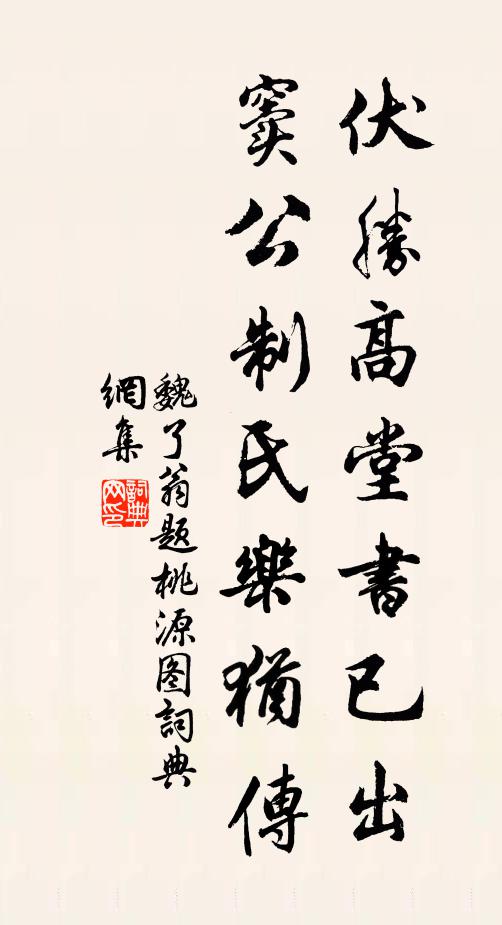 伏勝高堂書已出
竇公制氏樂猶傳
魏了翁題桃源图詞典
網集
詞典
网印